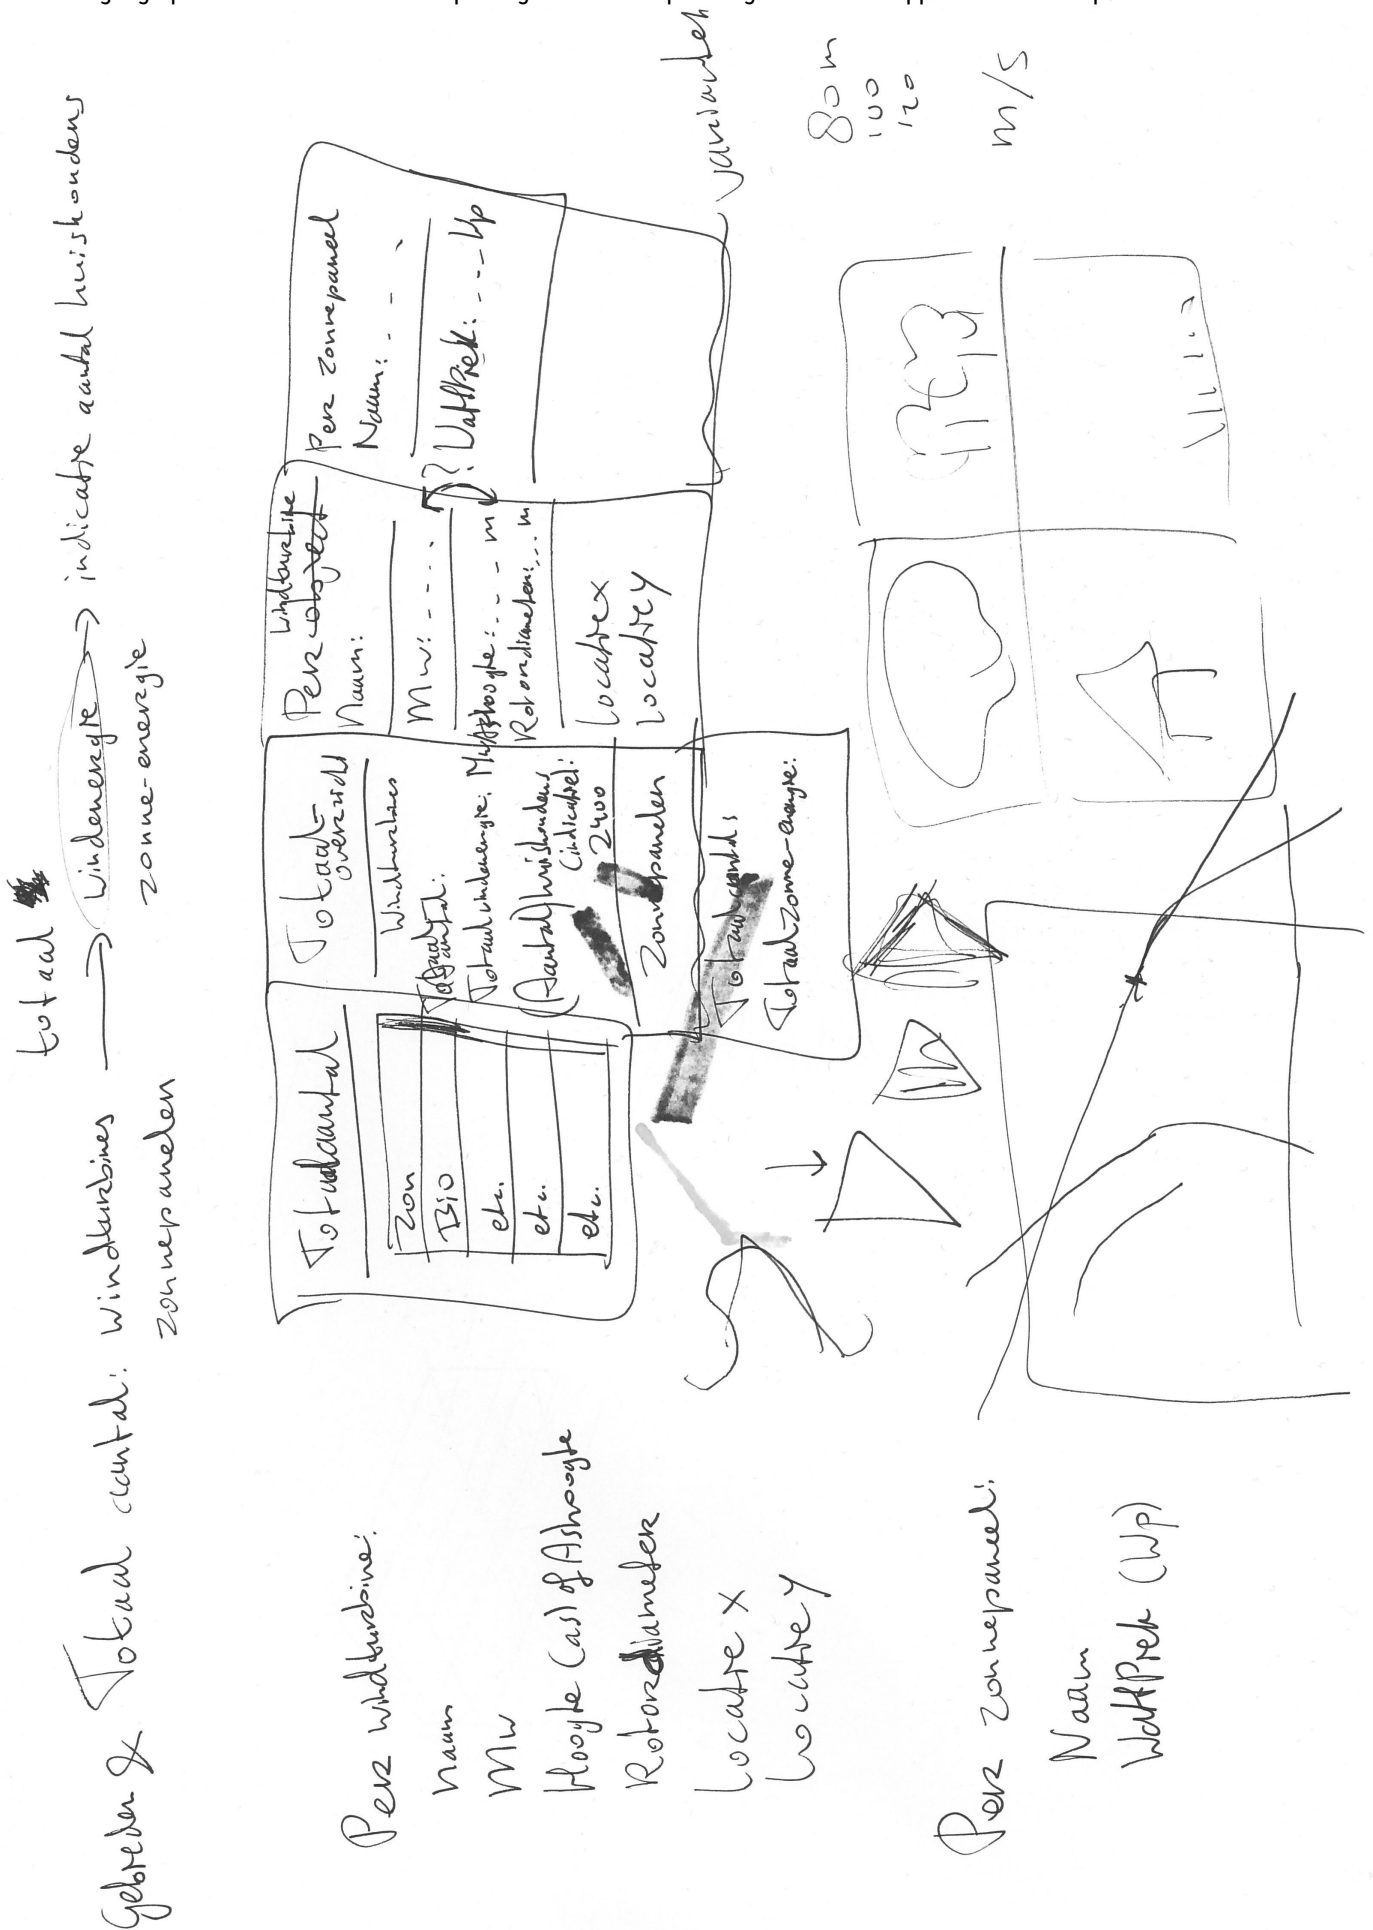 totaal
Gebieden & Totaal aantal: windturbines → windenergie → indicatie aantal huishoudens
zonnepanelen zonne-energie
Per windturbine:
naam
MW
Hoogte (as) of Ashoogte
Rotordiameter
Locatie x
Locatie y
Per zonnepaneel:
Naam
WattPiek (Wp)
Totaalaantal
Zon
Bio
etc.
etc.
etc.
Totaal-
overzicht
Windturbines
Totaal
aantal:
Totaal windenergie: MW
(Aantal huishoudens
(indicatie):
2400
Zonnepanelen
Totaal aantal:
Totaal zonne-energie:
windturbine
Per object
Naam:
MW: - - - .
Ashoogte: - - - m
Rotordiameter: ... m
Locatie x
Locatie y
Per zonnepaneel
Naam: - - -
? WattPiek: - - - Wp
varianten
80 m
100
120
m/s